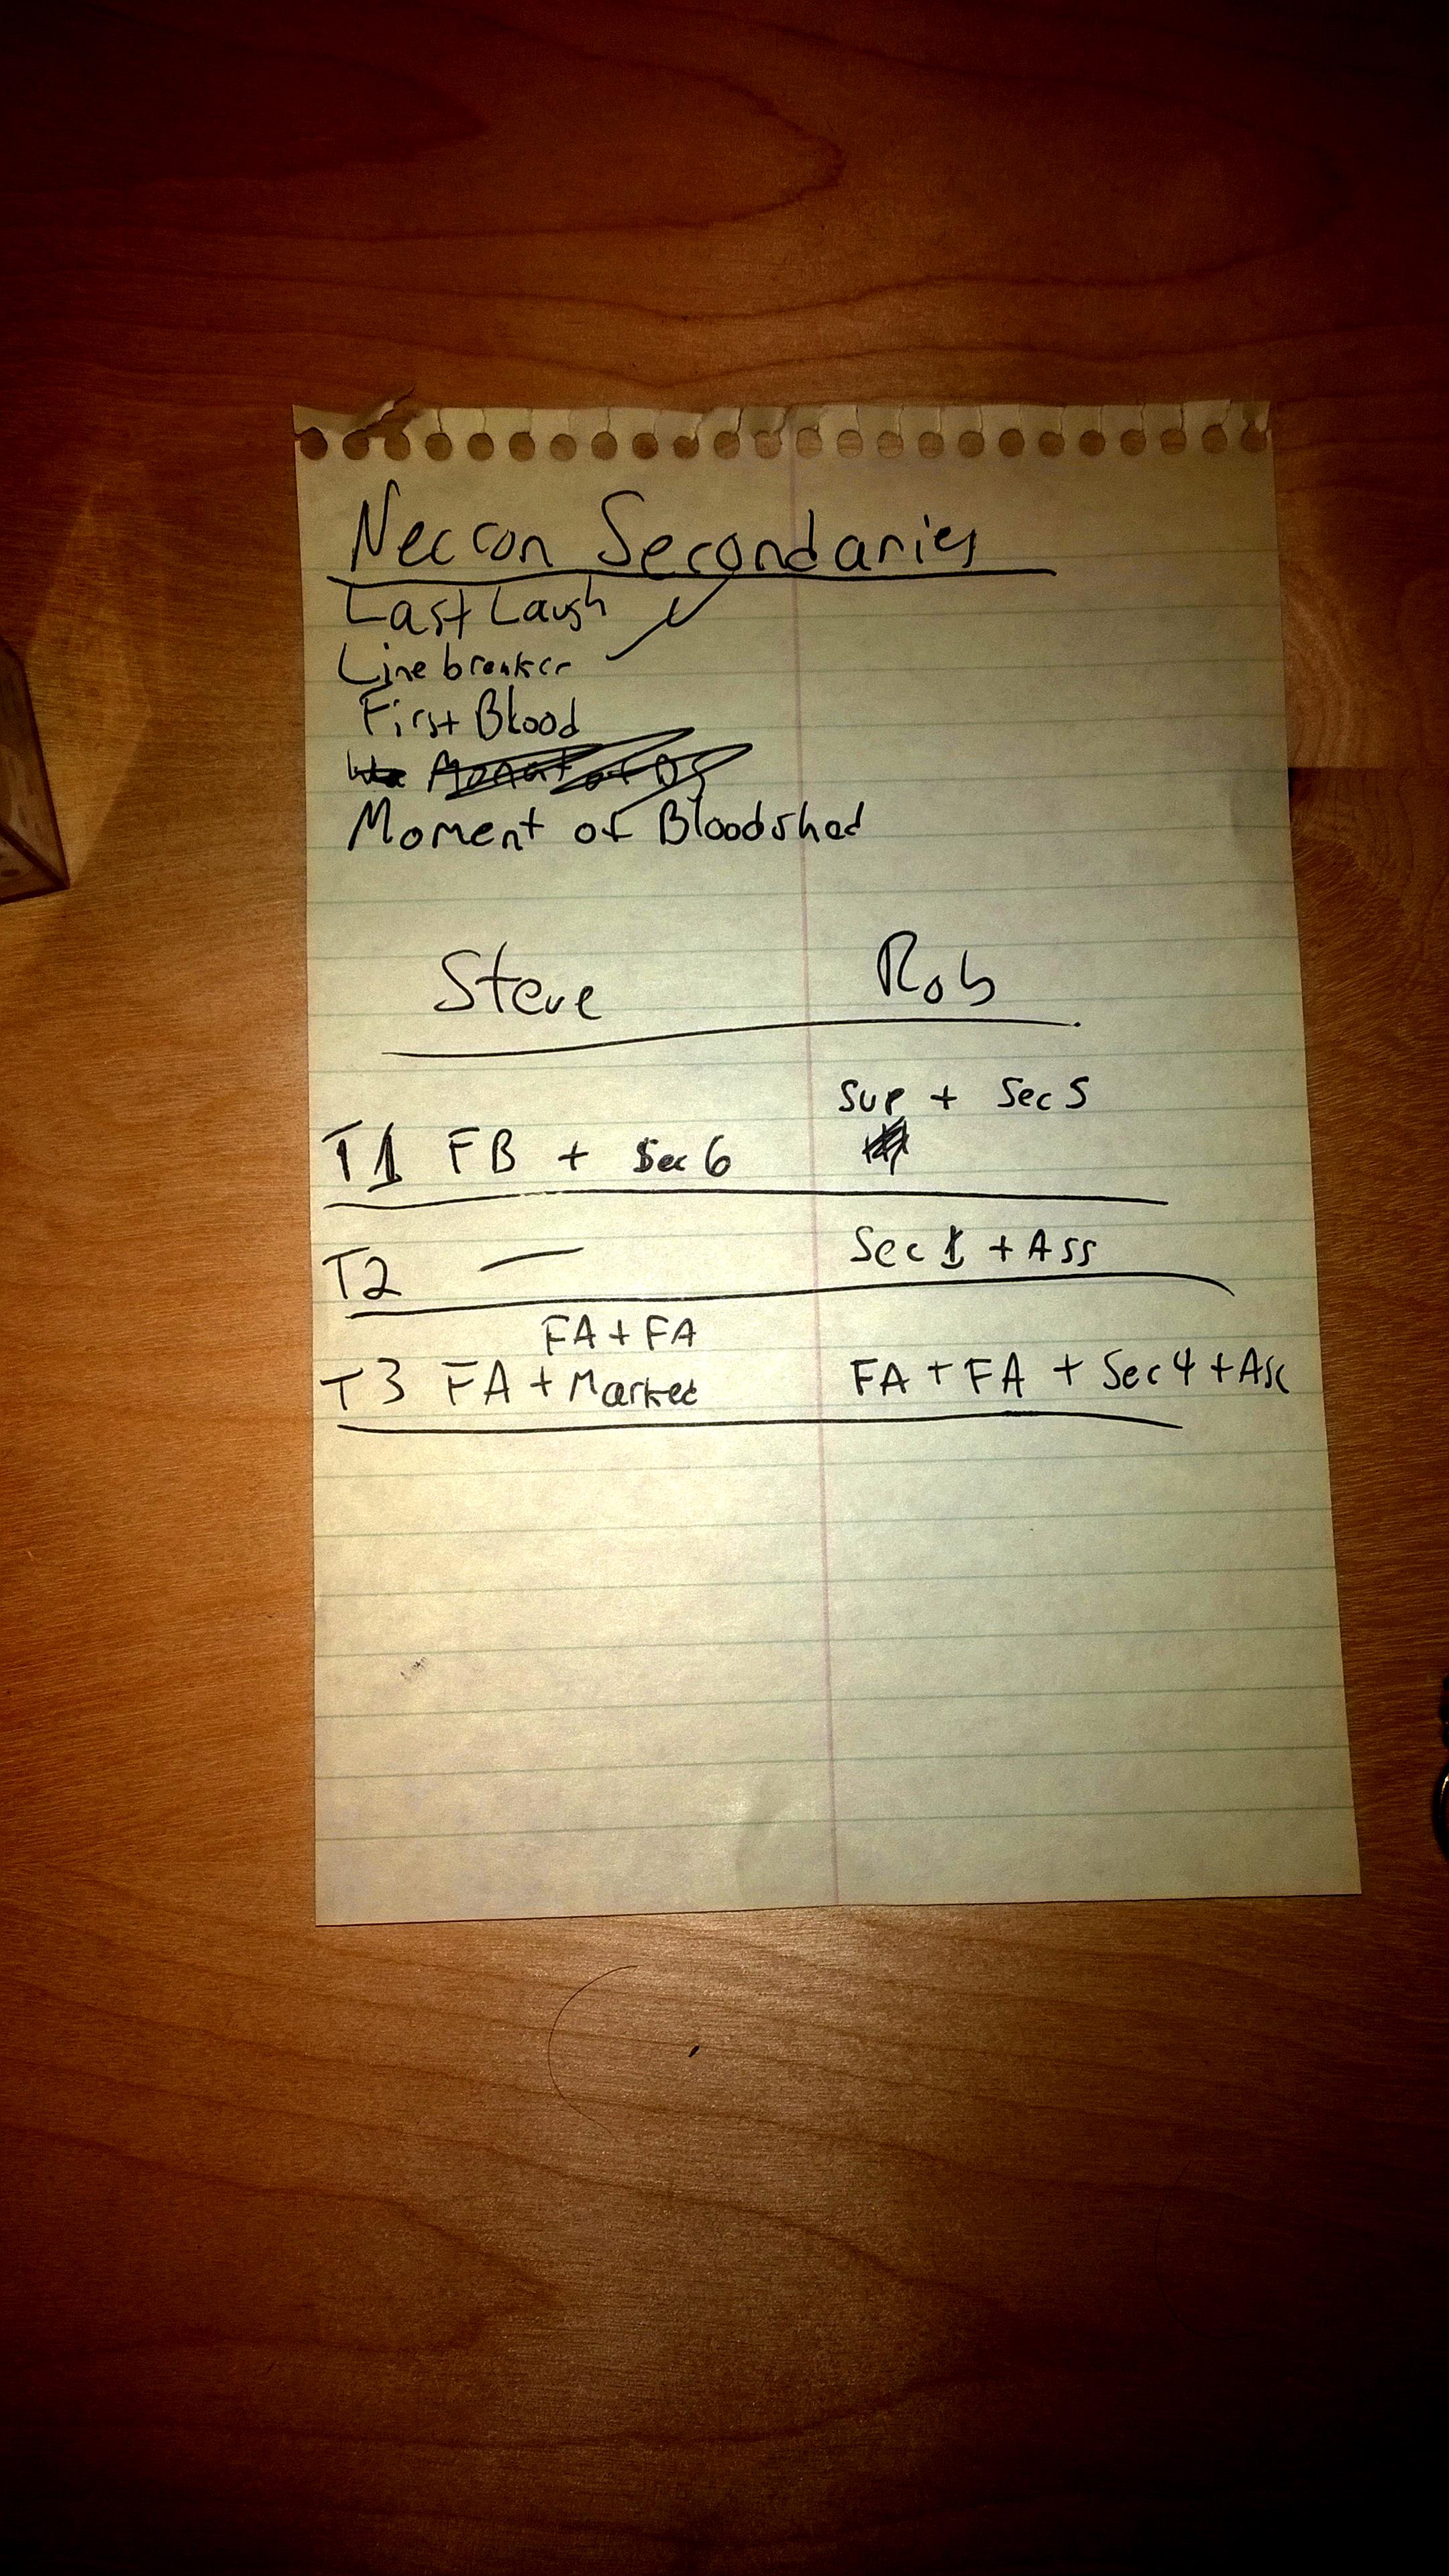 Necron Secondaries
Last Laugh
Linebreaker
First Blood
Moment of Bloodshed
Steve Rob
Sup + Sec 5
T1 FB + Sec 6
T2 — Sec 1 + Ass
FA + FA
T3 FA + Marked FA + FA + Sec 4 + Ass